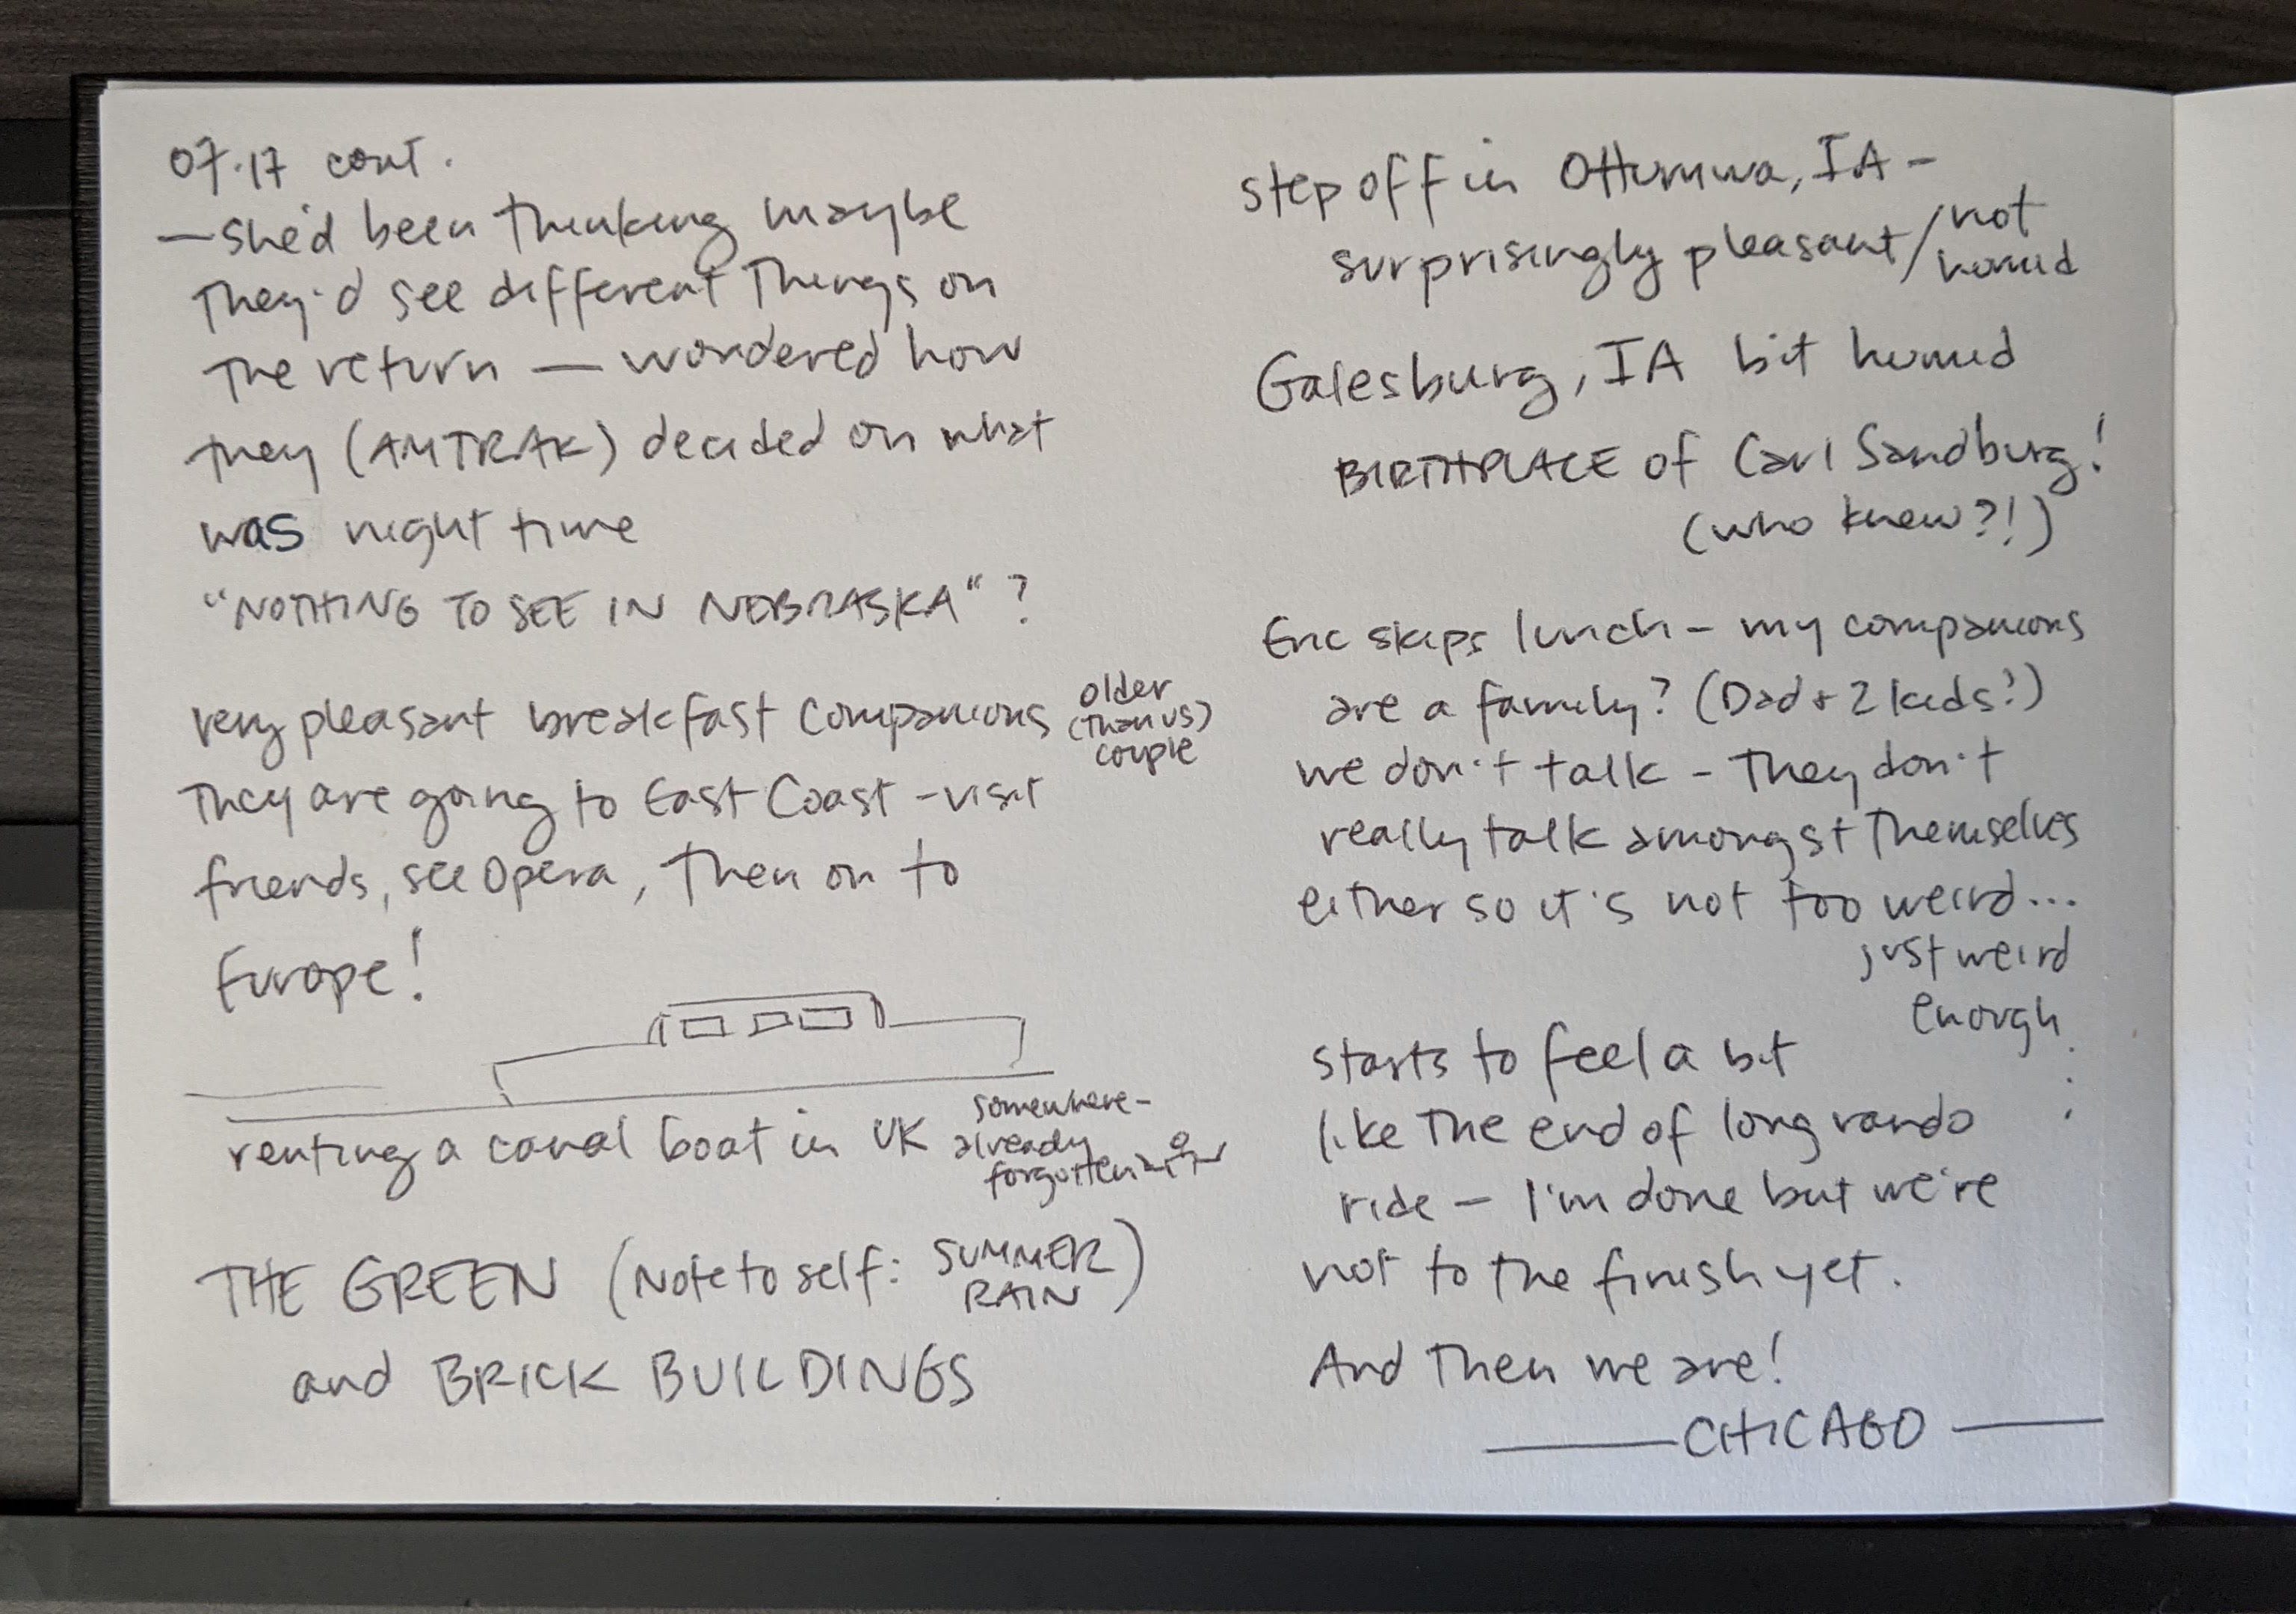 07.17 cont.
— she'd been thinking maybe
they'd see different things on
the return — wondered how
they (AMTRAK) decided on what
was night time
"NOTHING TO SEE IN NEBRASKA"?
very pleasant breakfast companions
older
(than us)
couple
They are going to East Coast - visit
friends, see Opera, then on to
Europe!
renting a canal boat in UK
somewhere -
already
forgotten
THE GREEN (Note to self: SUMMER
RAIN)
and BRICK BUILDINGS
step off in Ottumwa, IA -
surprisingly pleasant/not
humid
Galesburg, IA bit humid
BIRTHPLACE of Carl Sandburg!
(who knew?!)
Eric skips lunch - my companions
are a family? (Dad + 2 kids?)
we don't talk - They don't
really talk amongst themselves
either so it's not too weird...
just weird
enough
starts to feel a bit
like the end of long rando
ride - I'm done but we're
not to the finish yet.
And then we are!
— CHICAGO —